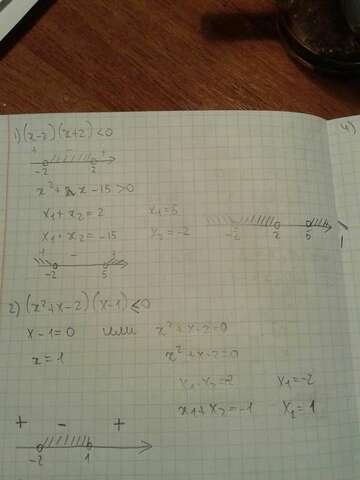 1) (x-2)(x+2)<0
+ - +
-2 2
x²+ x-15>0
x₁+x₂=2 x₁=5
x₁·x₂=-15 x₂=-2
-2 2 5
+ -
-2 5
2) (x²+x-2)(x-1)≤0
x-1=0 или x²+x-2=0
x=1 x²+x-2=0
x₁·x₂=-2 x₁=-2
x₁+x₂=-1 x₂=1
+ - +
-2 1
4)